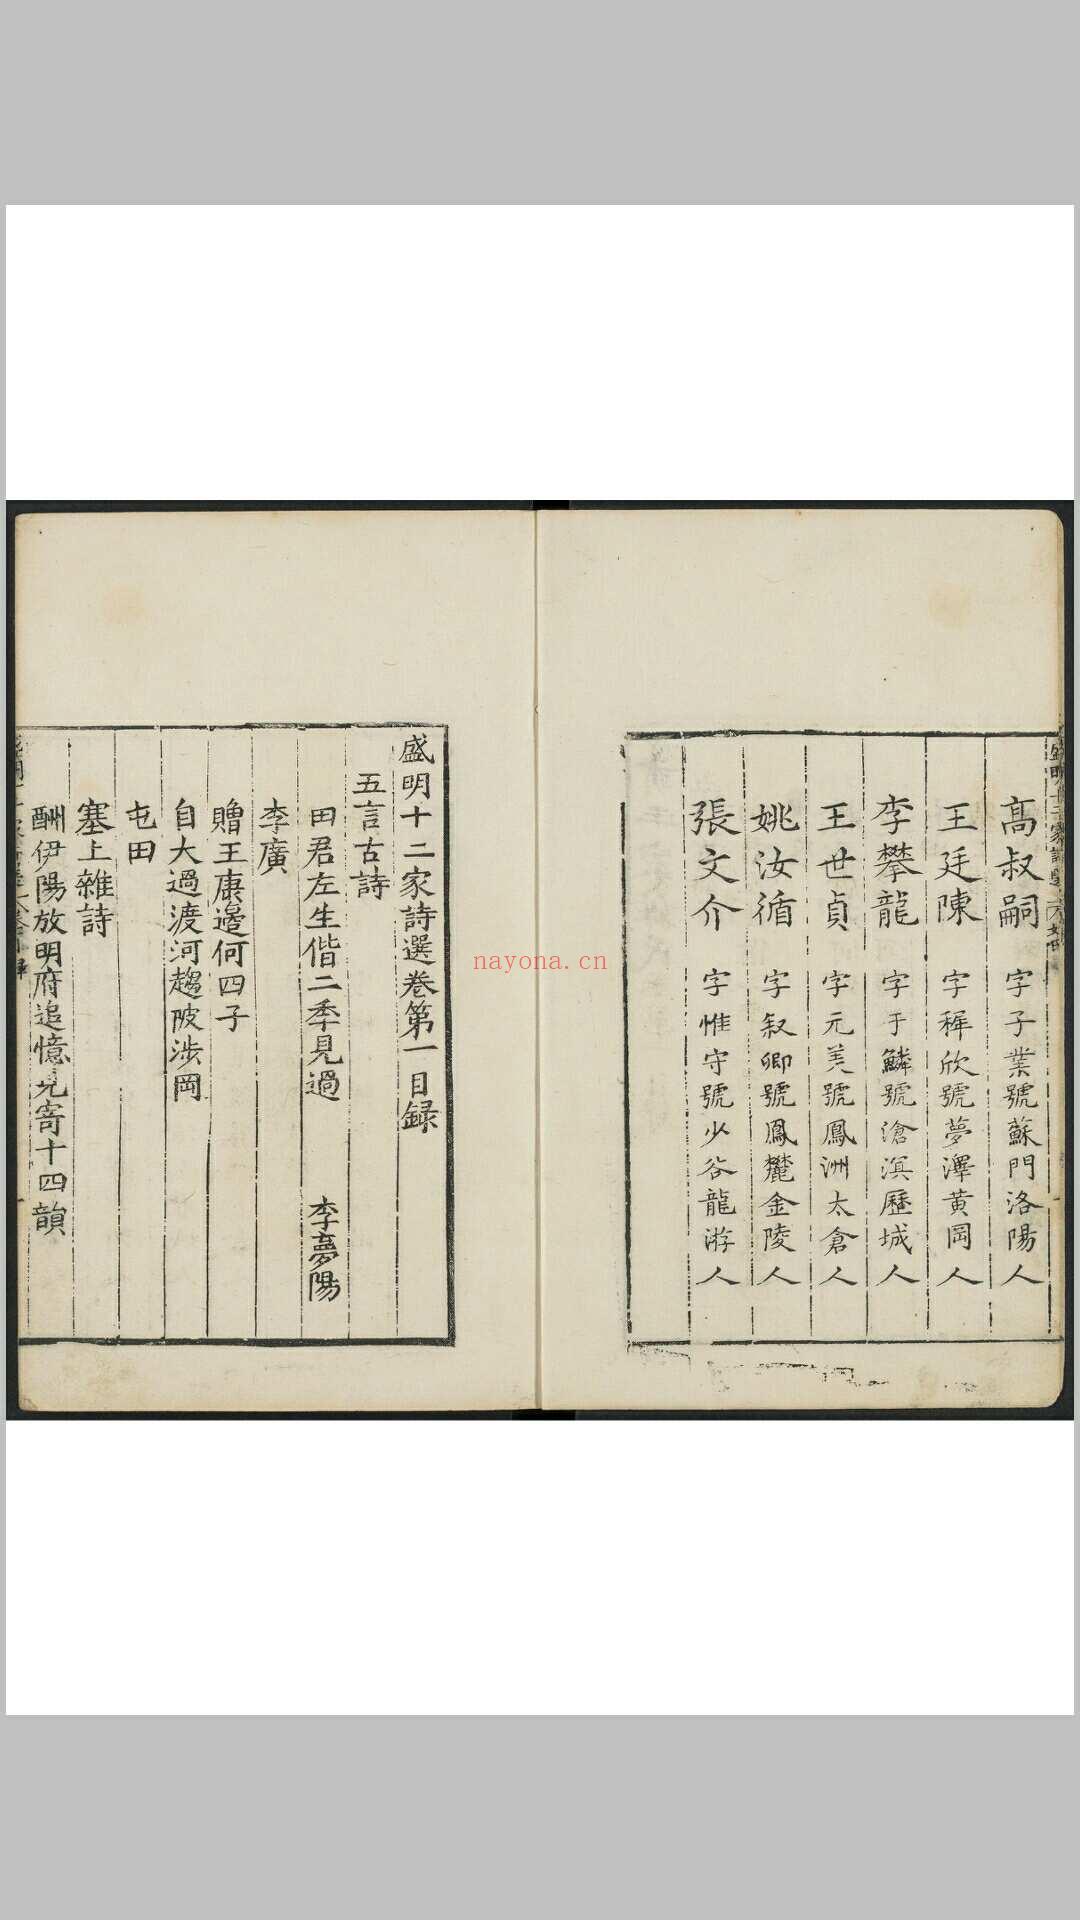 高叔嗣 字子業號蘇門洛陽人
王廷陳 字稺欣號夢澤黃岡人
李攀龍 字于鱗號滄溟歷城人
王世貞 字元美號鳳洲太倉人
姚汝循 字叙卿號鳳麓金陵人
張文介 字惟守號少谷龍游人
盛明十二家詩選卷第一目録
五言古詩
田君左生偕二季見過 李夢陽
李廣
贈王康邊何四子
自大過渡河趨陂涉岡
屯田
塞上雜詩
酬伊陽放明府追憶見寄十四韻
nayona.cn